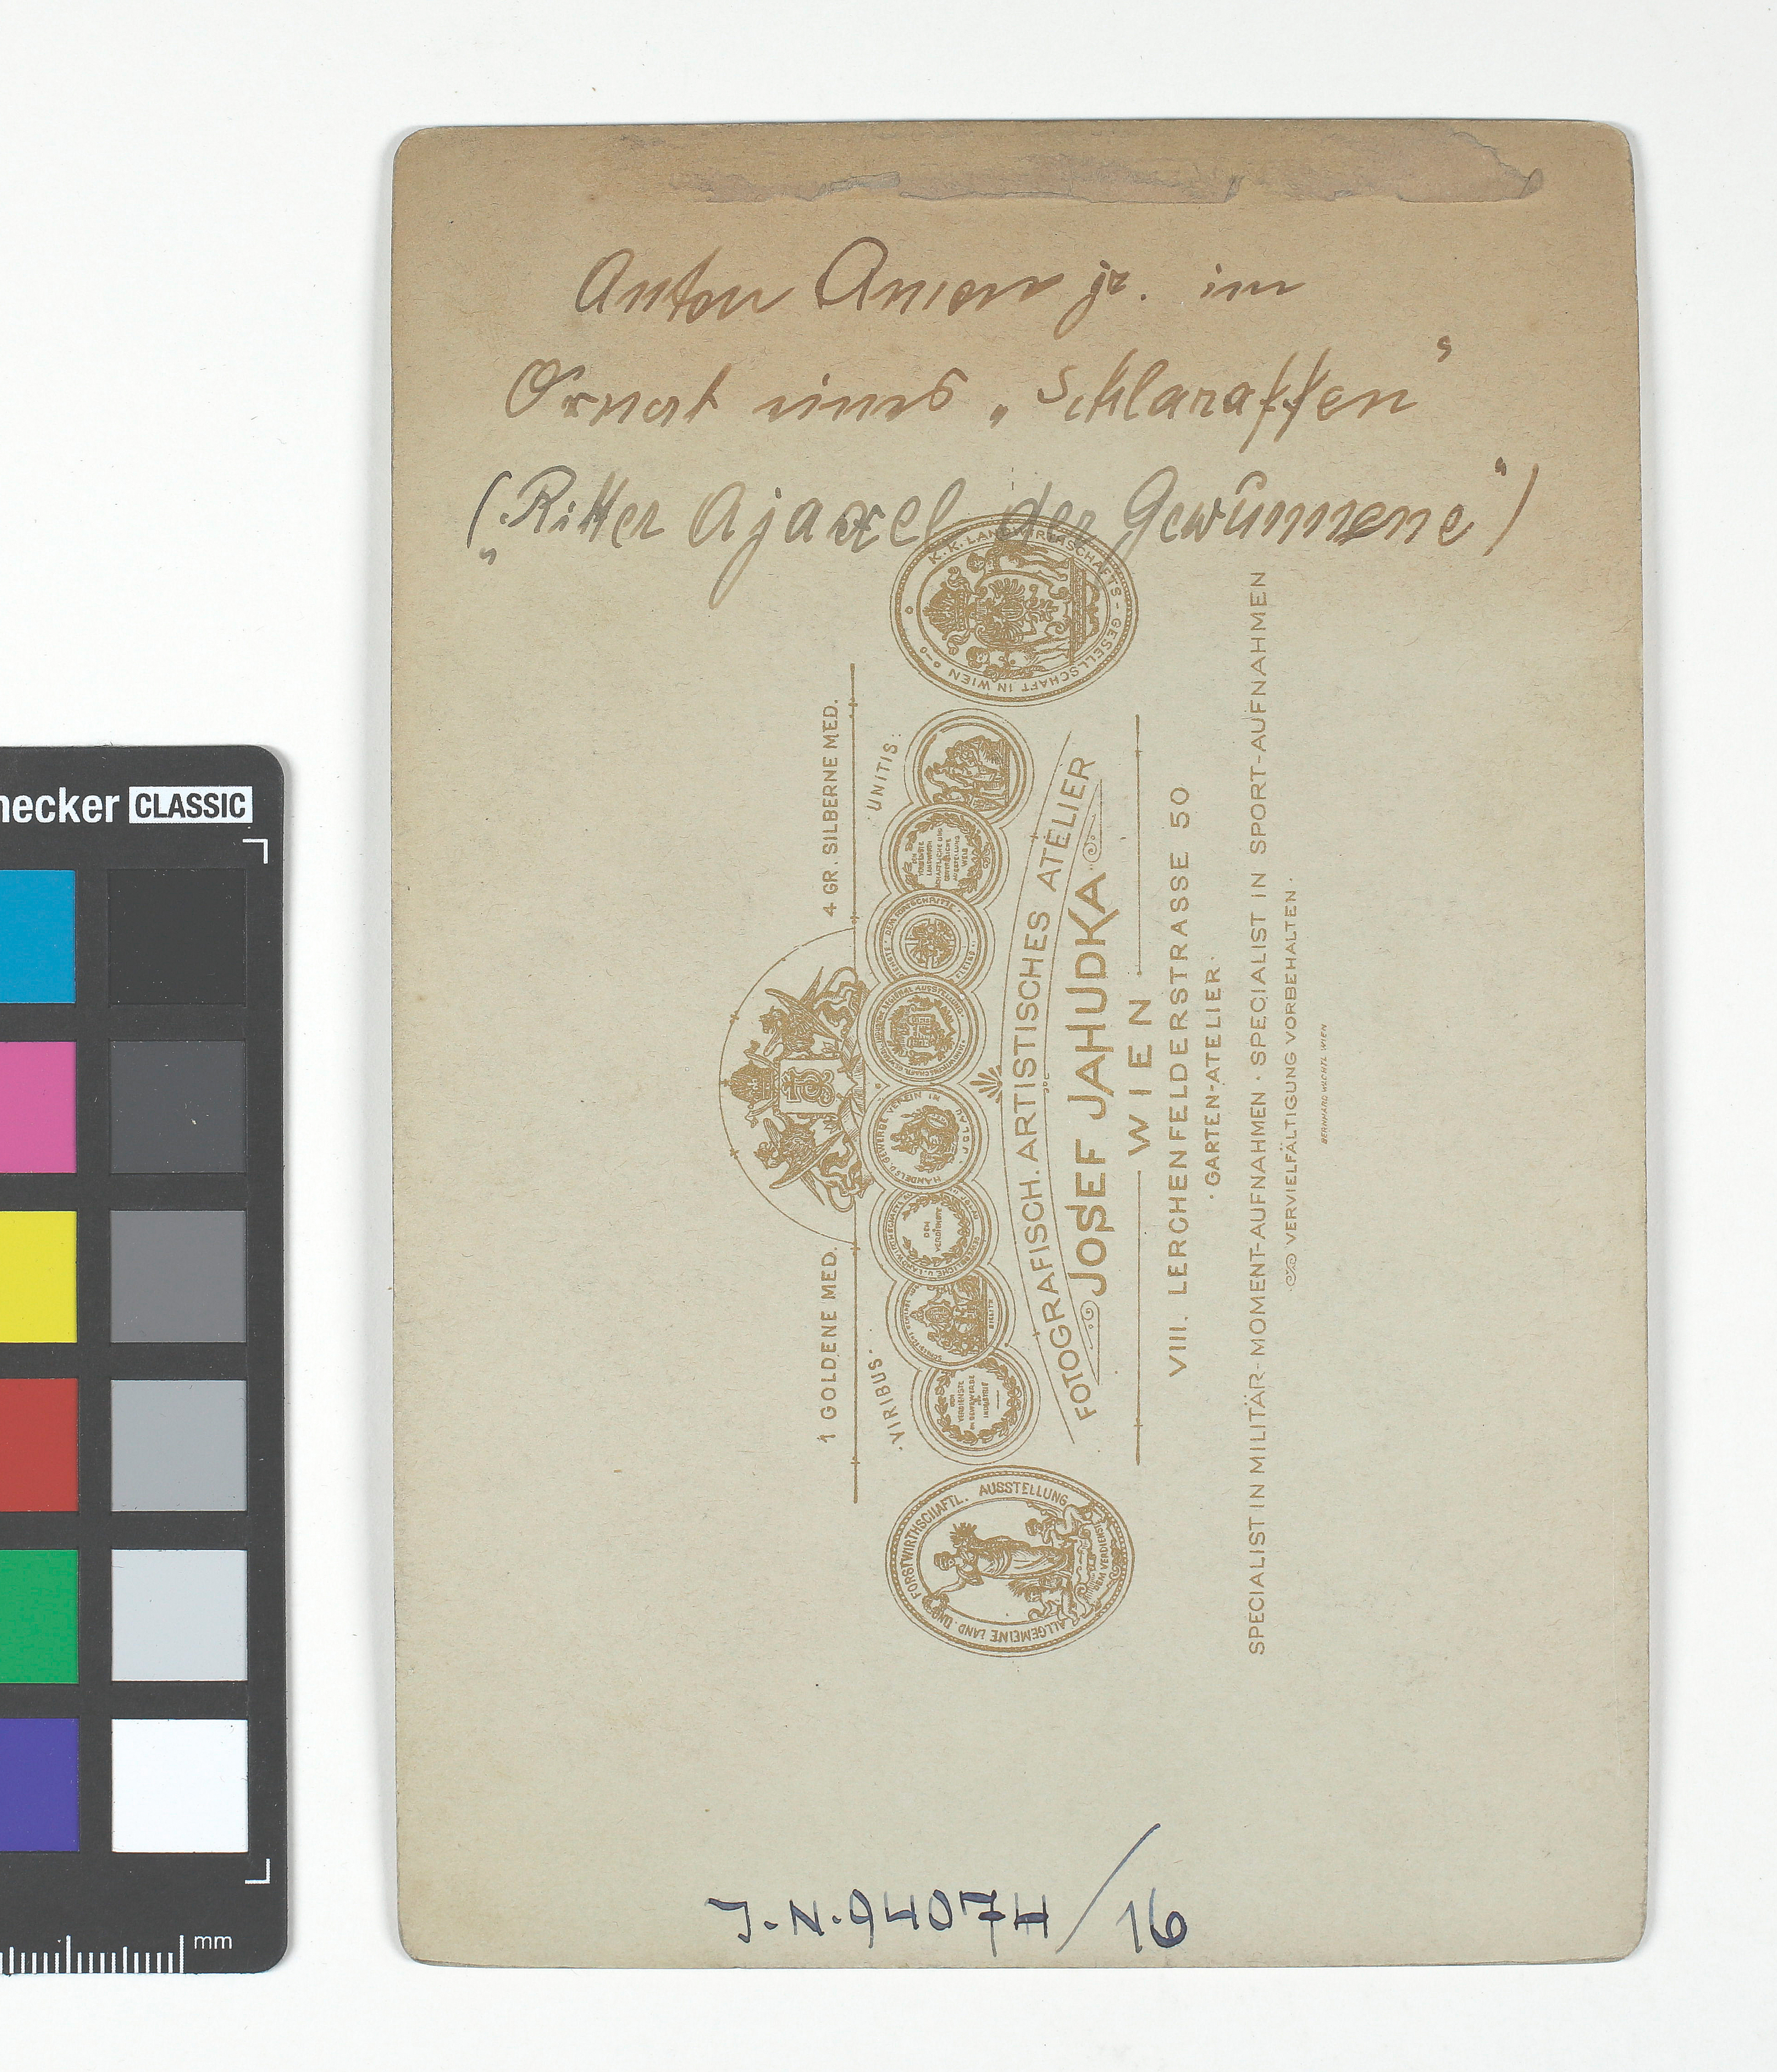 Anton Amon jr. im
Ornat eines „Schlaraffen“
(„Ritter Ajaxel der Gewûnnene“)
K. K. LANDWIRTHSCHAFTS-GESELLSCHAFT IN WIEN
1 GOLDENE MED. 4 GR. SILBERNE MED.
·VIRIBUS· ·UNITIS·
DEM VERDIENSTE
ALLGEMEINE LAND UND FORSTWIRTHSCHAFTL. AUSSTELLUNG
FOTOGRAFISCH. ARTISTISCHES ATELIER
JOSEF JAHUDKA
WIEN
VIII. LERCHENFELDERSTRASSE 50
·GARTEN-ATELIER·
SPECIALIST IN MILITÄR-MOMENT-AUFNAHMEN · SPECIALIST IN SPORT-AUFNAHMEN
VERVIELFÄLTIGUNG VORBEHALTEN ·
BERNHARD WICHTL WIEN
J.N. 94074/16
necker CLASSIC
mm